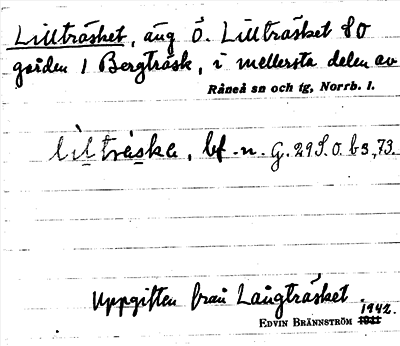 Lillträsket, äng Ö. Lillträsket 80
gården 1 Bergträsk, i mellersta delen av
Råneå sn och tg, Norrb. l.
lilträska, bf. n. G. 29 S. o. bs, 73.
Uppgiften från Långträsket.
1942.
EDVIN BRÄNNSTRÖM 1941